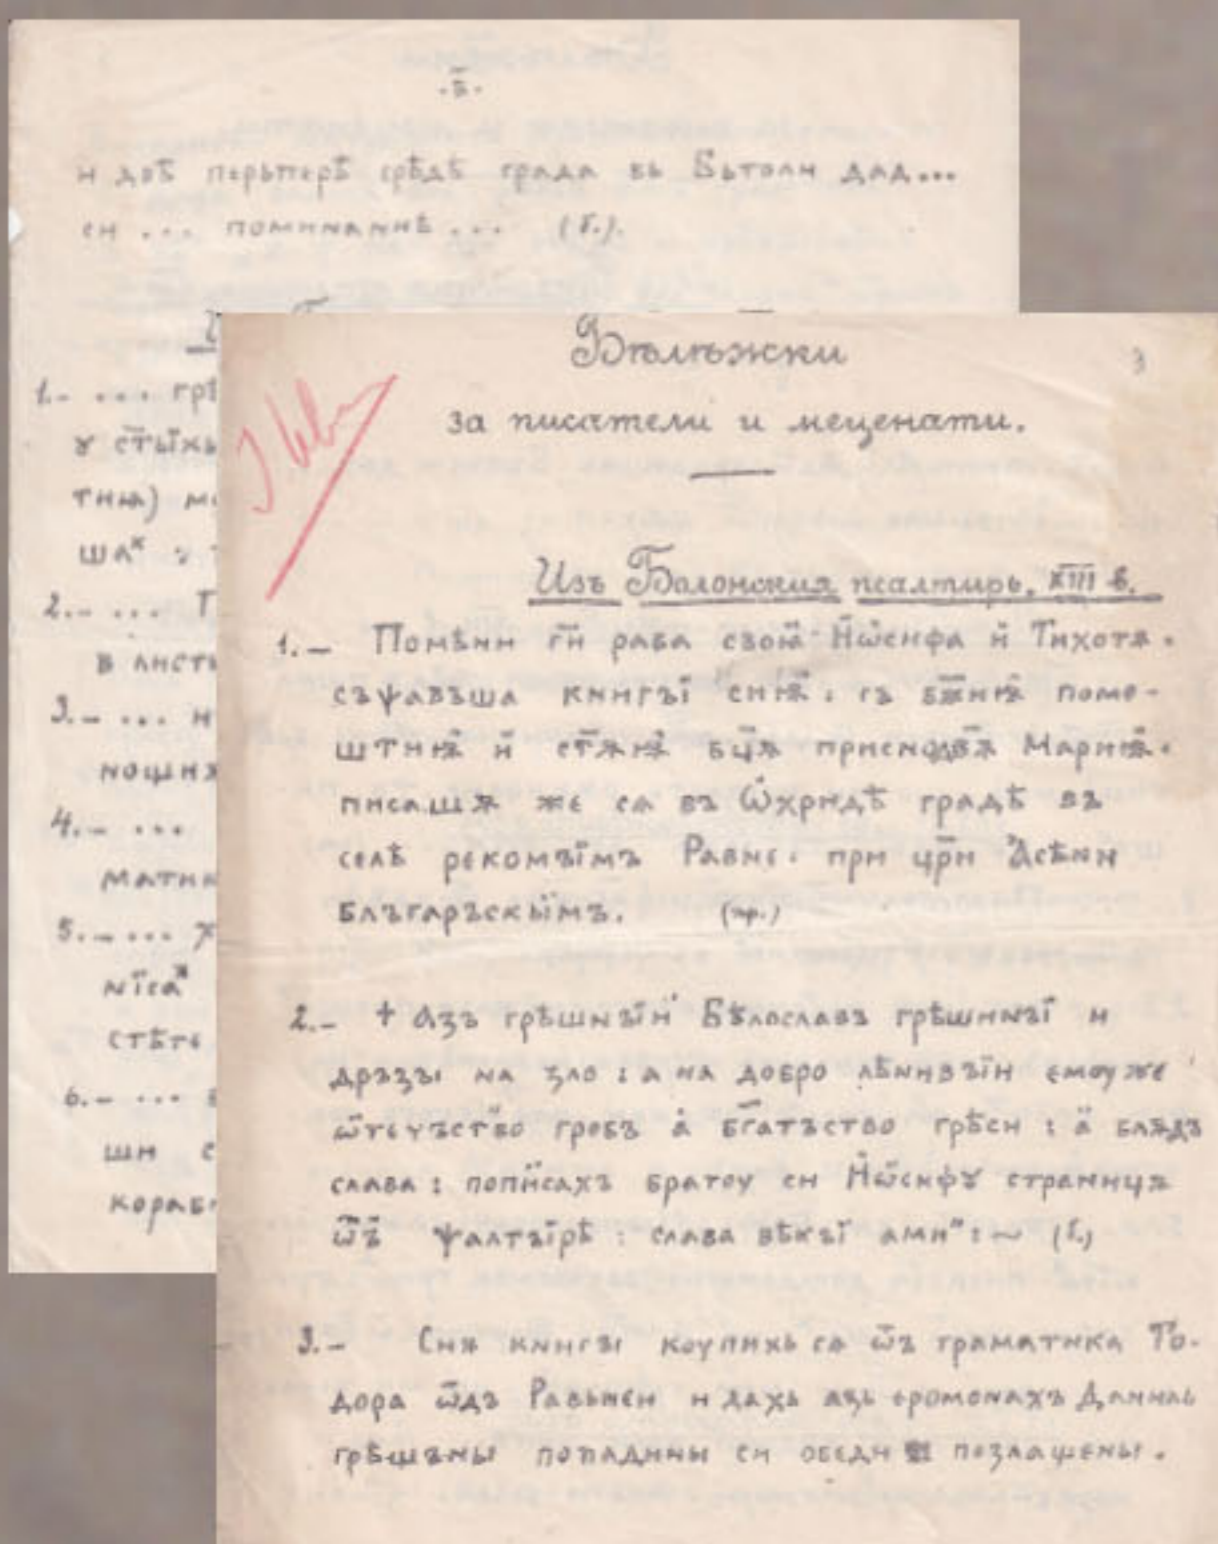 ·Б҃·
и двѣ перьперѣ срѣдѣ града вь Бьтоли дад...
си ... поминаниѣ ... (б.).
1.- ... грѣ
ꙋ ст҃ы́хь
тниꙗ) мо
ша
2.- ... Г
в листь
3.- ... н
нощиѫ
4.- ...
матик
5.- ... х
стѣте
6.- ...
ши с
кораб
Бѣлѣжки
3
за писатели и меценати.
Изъ Болонския псалтирь, XIII в.
1.- Помѣни г҃и раба своꙗ҃ Йѡ҅сифа и҆ Тихотѫ.
съѱавъша книгъі сиѩ҃: съ бж҃иеѭ помо-
штиѭ и҆ ст҃ѫѭ бц҃ѫ присподв҃ѫ Мариѭ.
писашѧ же сѧ въ Ѡ҅хридѣ градѣ въ
селѣ рекомъімъ Равне: при цр҃и А҆сѣни
блъгаръскы҆имъ. (пр.)
2.- + Азъ грѣшнъін Бѣлославъ грѣшнъі и
дръзъı на зло: а на добро лѣнивъін емоу же
ѿтечъство гробъ а҆ бг҃атъство грѣси: а҆ блѫдъ
слава: попи҆сахъ братоу си Йѡ҅сифꙋ странницѫ
ѿъ ѱалтъірѣ: слава вѣкъі амиⷩ:~ (б.)
3.- Сиѩ книгъı коупихь сѧ ѿъ граматика То-
дора ѿдъ Равьнєи и дахь азь єромонахъ Даниль
грѣшъны попадины си обєди позлащены.